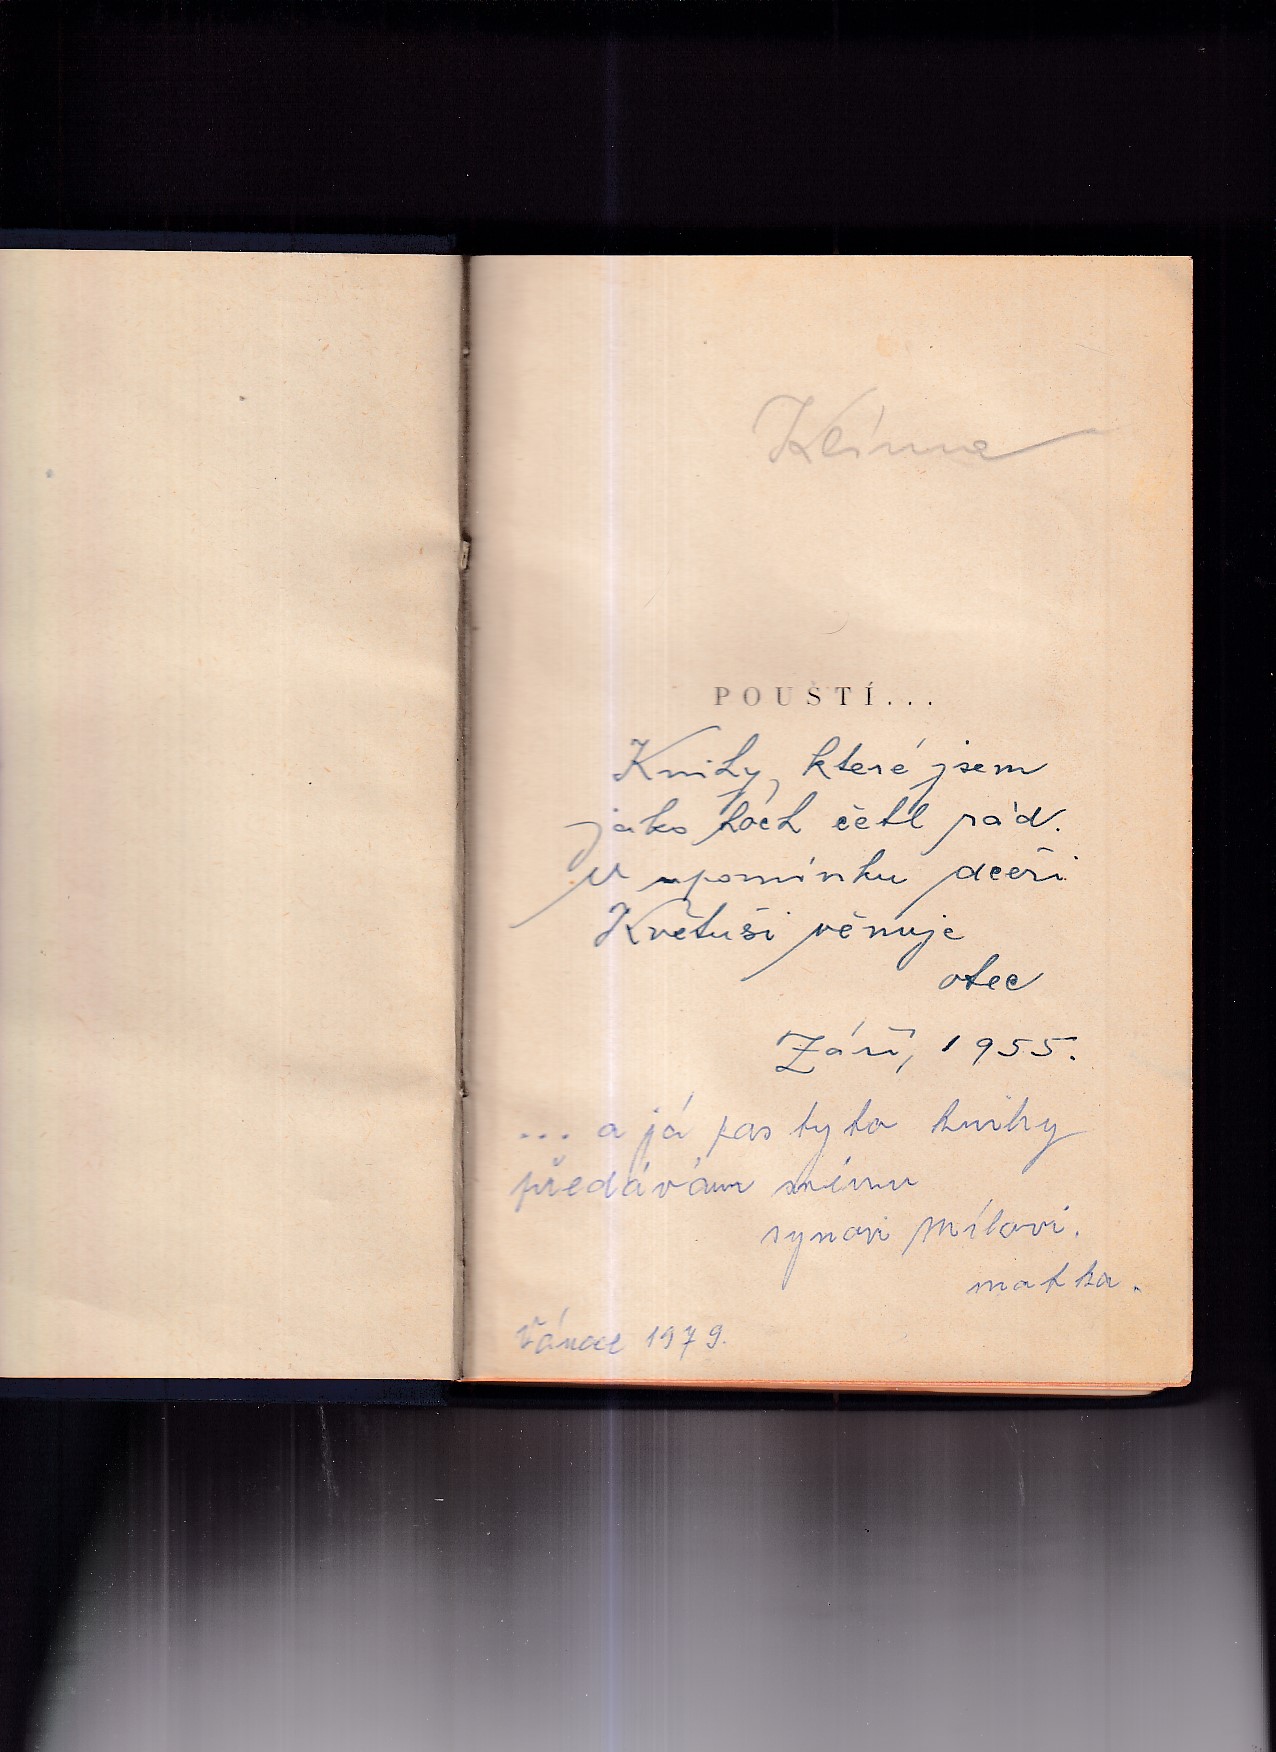 Klíma
POUŠTÍ...
Knihy, které jsem
jako hoch četl rád.
V upomínku dceři
Květuši věnuje
otec
Září, 1955.
... a já pas tyto knihy
předávám svému
synovi Mílovi.
matka.
Vánoce 1979.